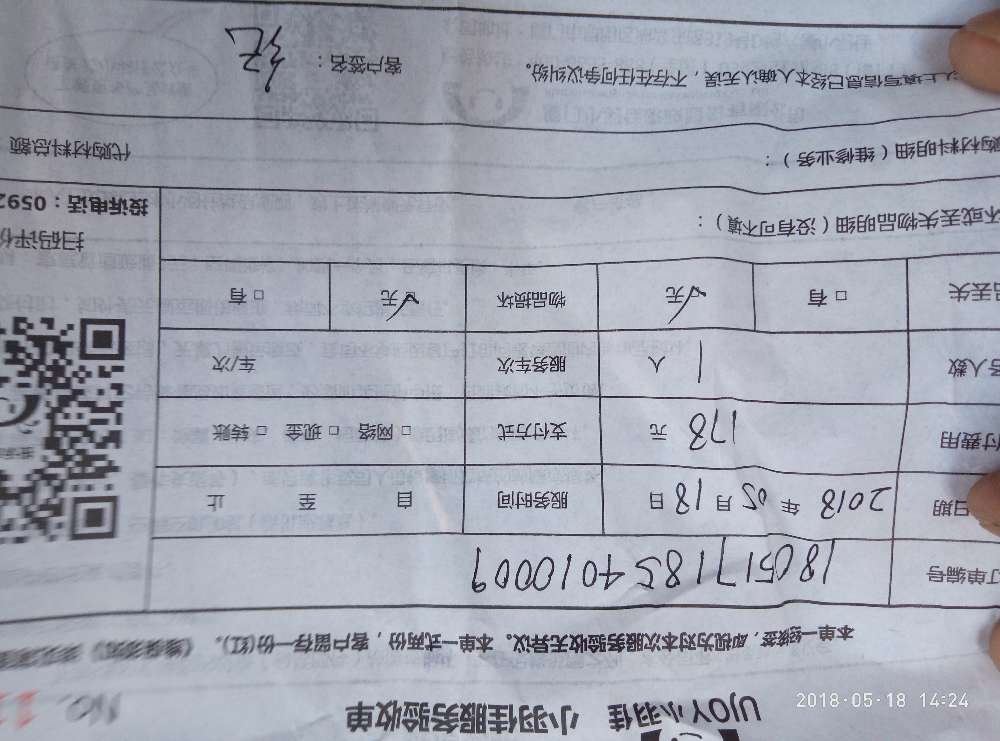 UJOY小羽佳 小羽佳服务验收单
No.
本单一经签,即视为对本次服务验收无异议。本单一式两份,客户留存一份(红)。
订单编号 1805171854010009
日期 2018 年 05 月 18 日 服务时间 自 至 止
付费用 178 元 支付方式 □ 网络 □ 现金 □ 转账
人数 1 人 服务车次 车/次
品丢失 □ 有 ☑无 物品损坏 ☑无 □ 有
坏或丢失物品明细(没有可不填):
扫码评价
投诉电话:0592
购材料明细(维修业务): 代购材料总额
以上填写信息已经本人确认无误,不存在任何争议纠纷。 客户签名:
2018-05-18 14:24